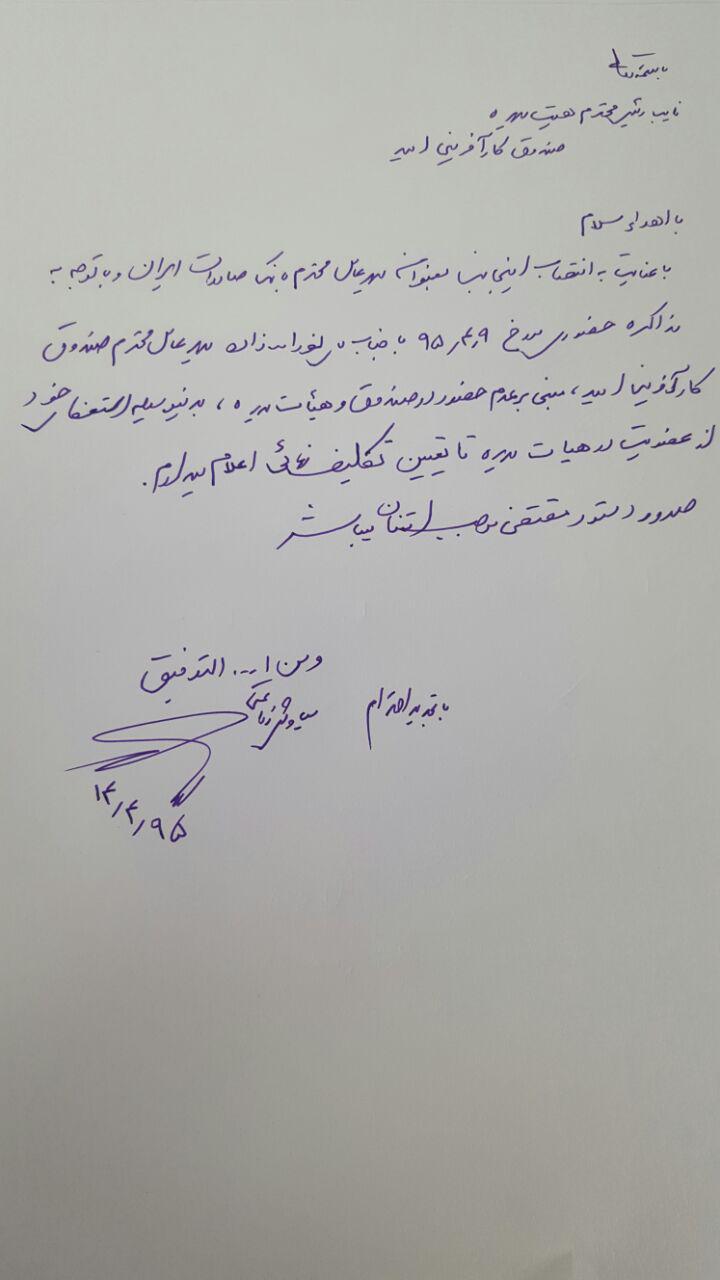 باسمه تعالی
نایب رئیس محترم هیئت مدیره
صندوق کارآفرینی امید
با اهداء سلام
با عنایت به انتصاب اینجانب بعنوان مدیرعامل محترم بانک صادرات ایران و با توجه به
مذاکره حضوری مورخ ۹۵٫۴٫۹ با جناب مدیرعامل محترم صندوق
کارآفرینی امید، مبنی بر عدم حضور در صندوق و هیئات مدیره، بدینوسیله استعفای خود
از عضویت در هیات مدیره تا تعیین تکلیف نهائی اعلام میدارم.
صدور دستور مقتضی موجب امتنان میباشد
ومن ا... التوفیق
با تجدید احترام
سیاوش زراعتی
۱۴/۴/۹۵